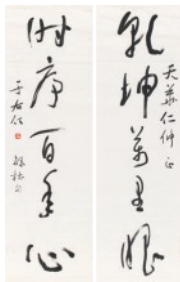 乾坤萬里眼
仁仲正
時序百年心
于右任